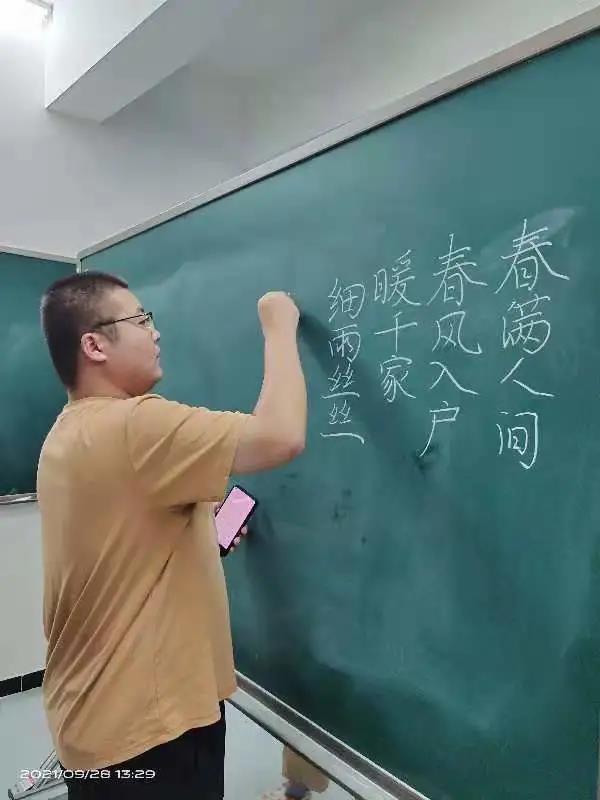 春满人间
春风入户
暖千家
细雨丝丝
2021/09/28 13:29